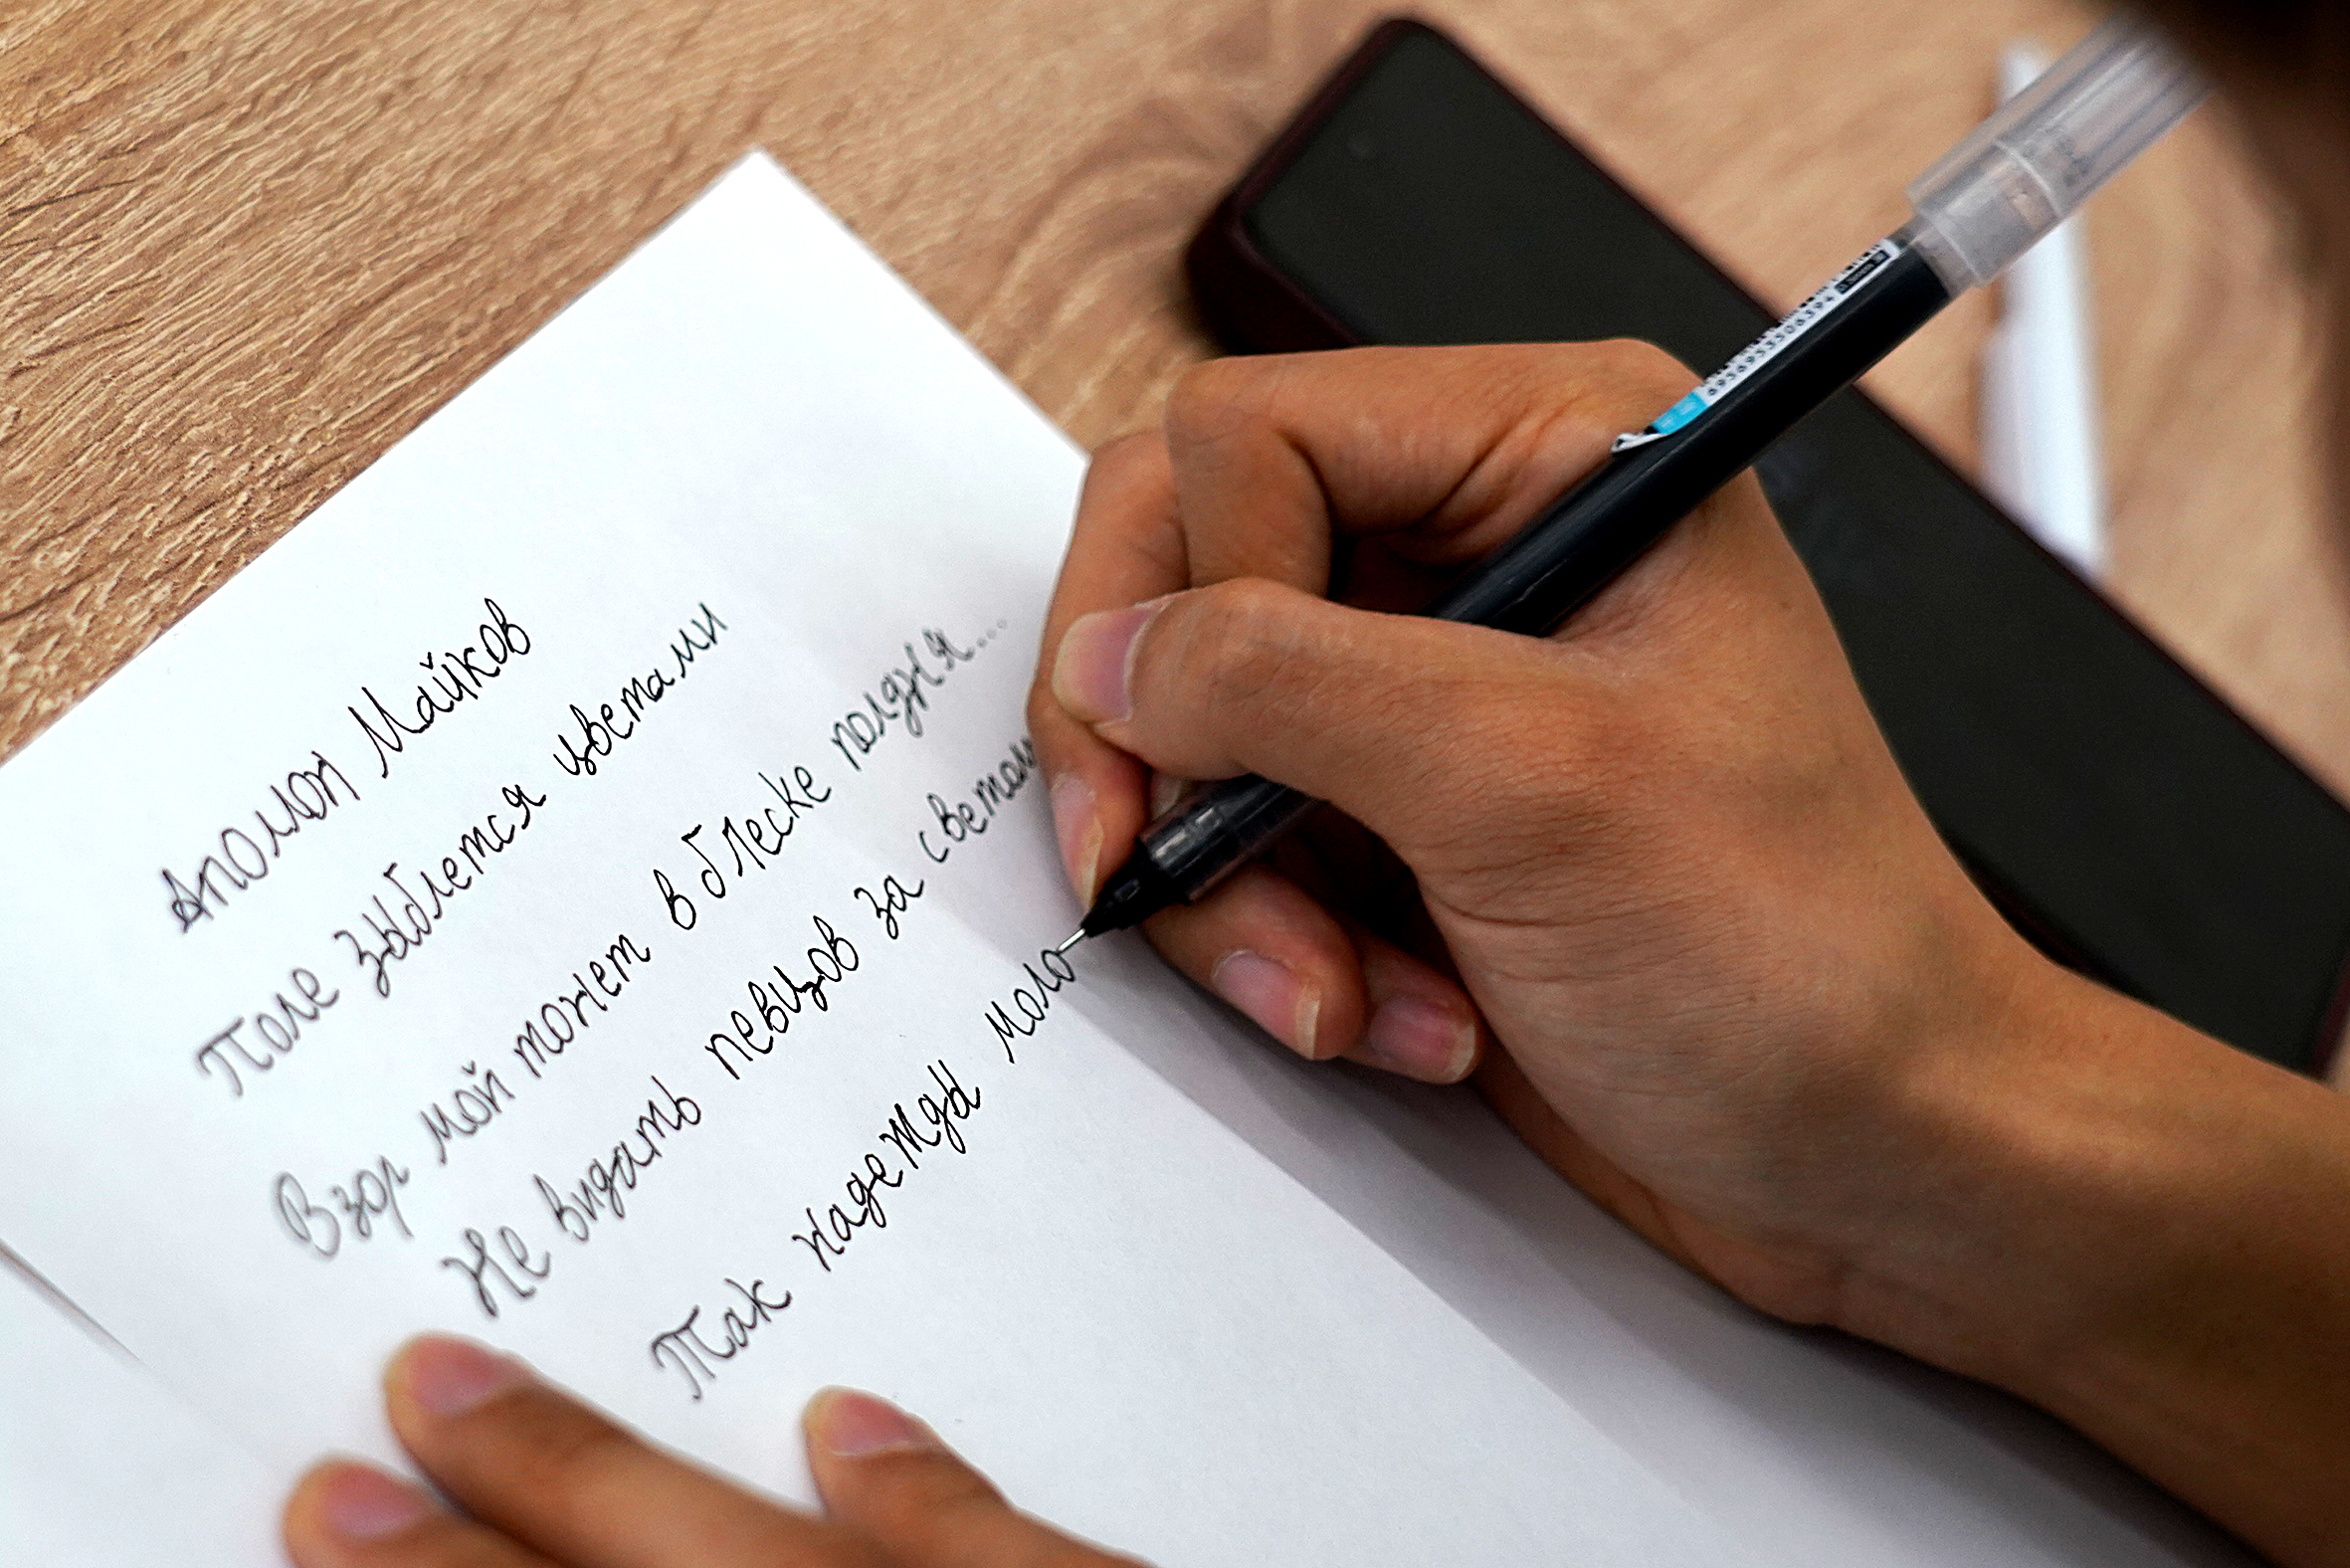 Аполлон Майков
Поле зыблется цветами
Взор мой тонет в блеске полдня...
Не видать певцов за светом
Так надежды моло
6938933308394